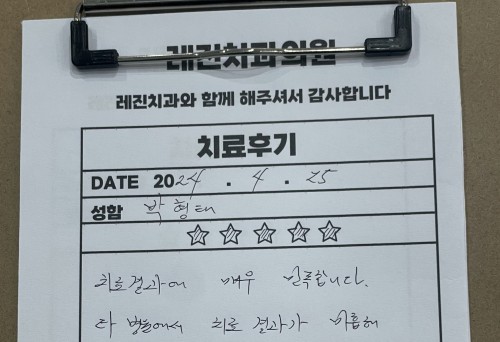 레진치과의원
레진치과와 함께 해주셔서 감사합니다
치료후기
DATE 2024 . 4 . 25
성함 박형태
치료결과에 매우 만족합니다.
타 병원에서 치료 결과가 미흡해